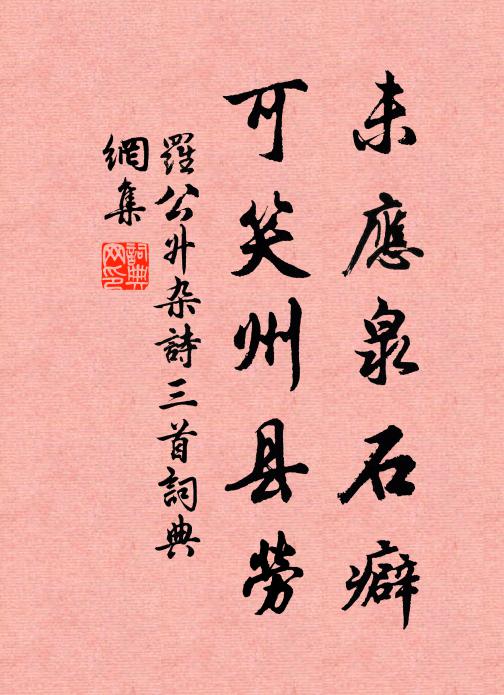 未應泉石癖
可笑州县勞
羅公升杂詩三首詞典
網集
詞典
网印